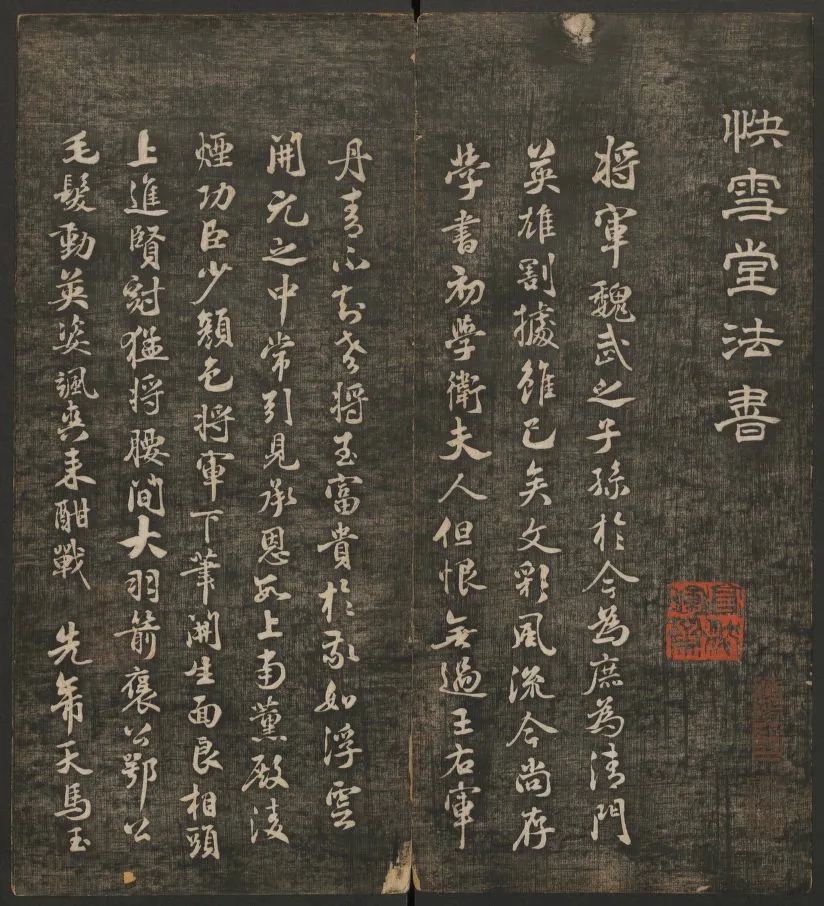 快雪堂法書
将軍魏武之子孫於今為庶為清門
英雄割據雖已矣文彩風流今尚存
学書初學衛夫人但恨無過王右軍
丹青不知老将至富貴於我如浮雲
開元之中常引見承恩數上南薰殿凌
煙功臣少顏色将軍下筆開生面良相頭
上進賢冠猛将腰間大羽箭褒公鄂公
毛髮動英姿颯爽来酣戰 先帝天馬玉